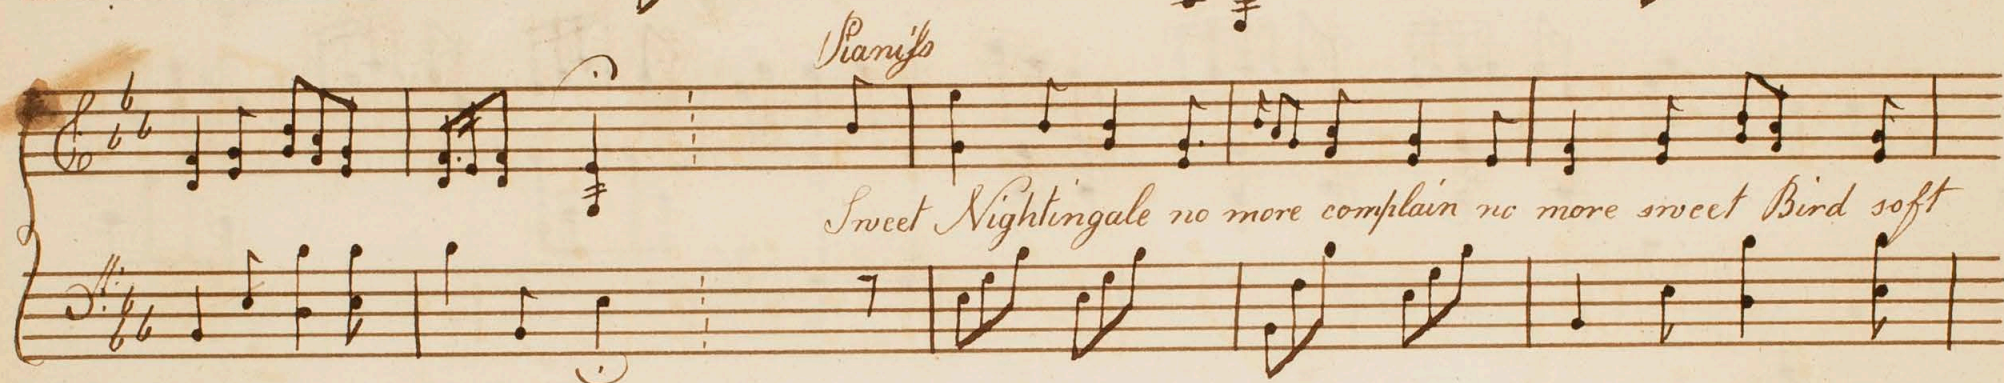 Pianiſs
Sweet Nightingale no more complain no more sweet Bird soft